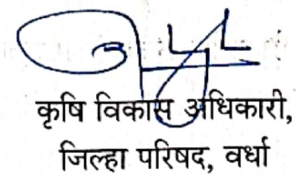 कृषि विकास अधिकारी,
जिल्हा परिषद, वर्धा